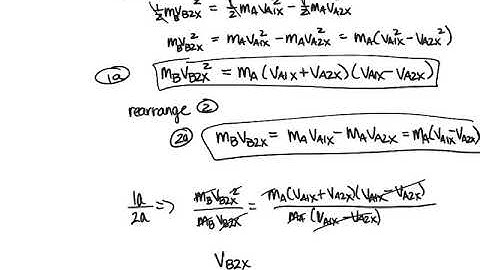 ½m_B V_B2x² = ½m_A V_A1x² - ½m_A V_A2x²
m_B V_B2x² = m_A V_A1x² - m_A V_A2x² = m_A(V_A1x² - V_A2x²)
1a m_B V_B2x² = m_A (V_A1x + V_A2x)(V_A1x - V_A2x)
rearrange 2
2a m_B V_B2x = m_A V_A1x - m_A V_A2x = m_A(V_A1x - V_A2x)
1a/2a => m_B V_B2x²/m_B V_B2x = m_A(V_A1x + V_A2x)(V_A1x - V_A2x)/m_A (V_A1x - V_A2x)
V_B2x